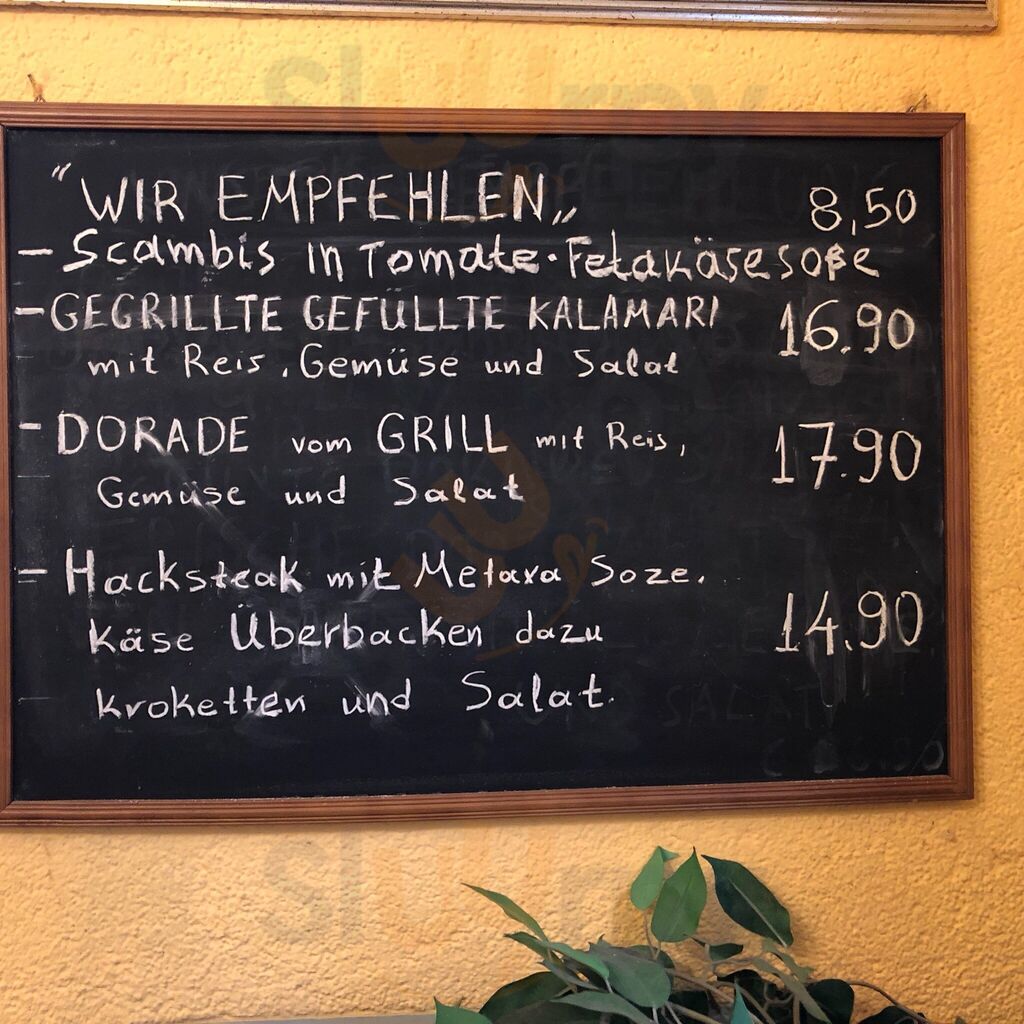 "WIR EMPFEHLEN„ 8,50
- Scambis in Tomate. Fetakäsesoße
- GEGRILLTE GEFÜLLTE KALAMARI 16.90
mit Reis, Gemüse und Salat
- DORADE vom GRILL mit Reis, 17.90
Gemüse und Salat
- Hacksteak mit Metaxa Soze.
Käse Überbacken dazu 14.90
kroketten und Salat.